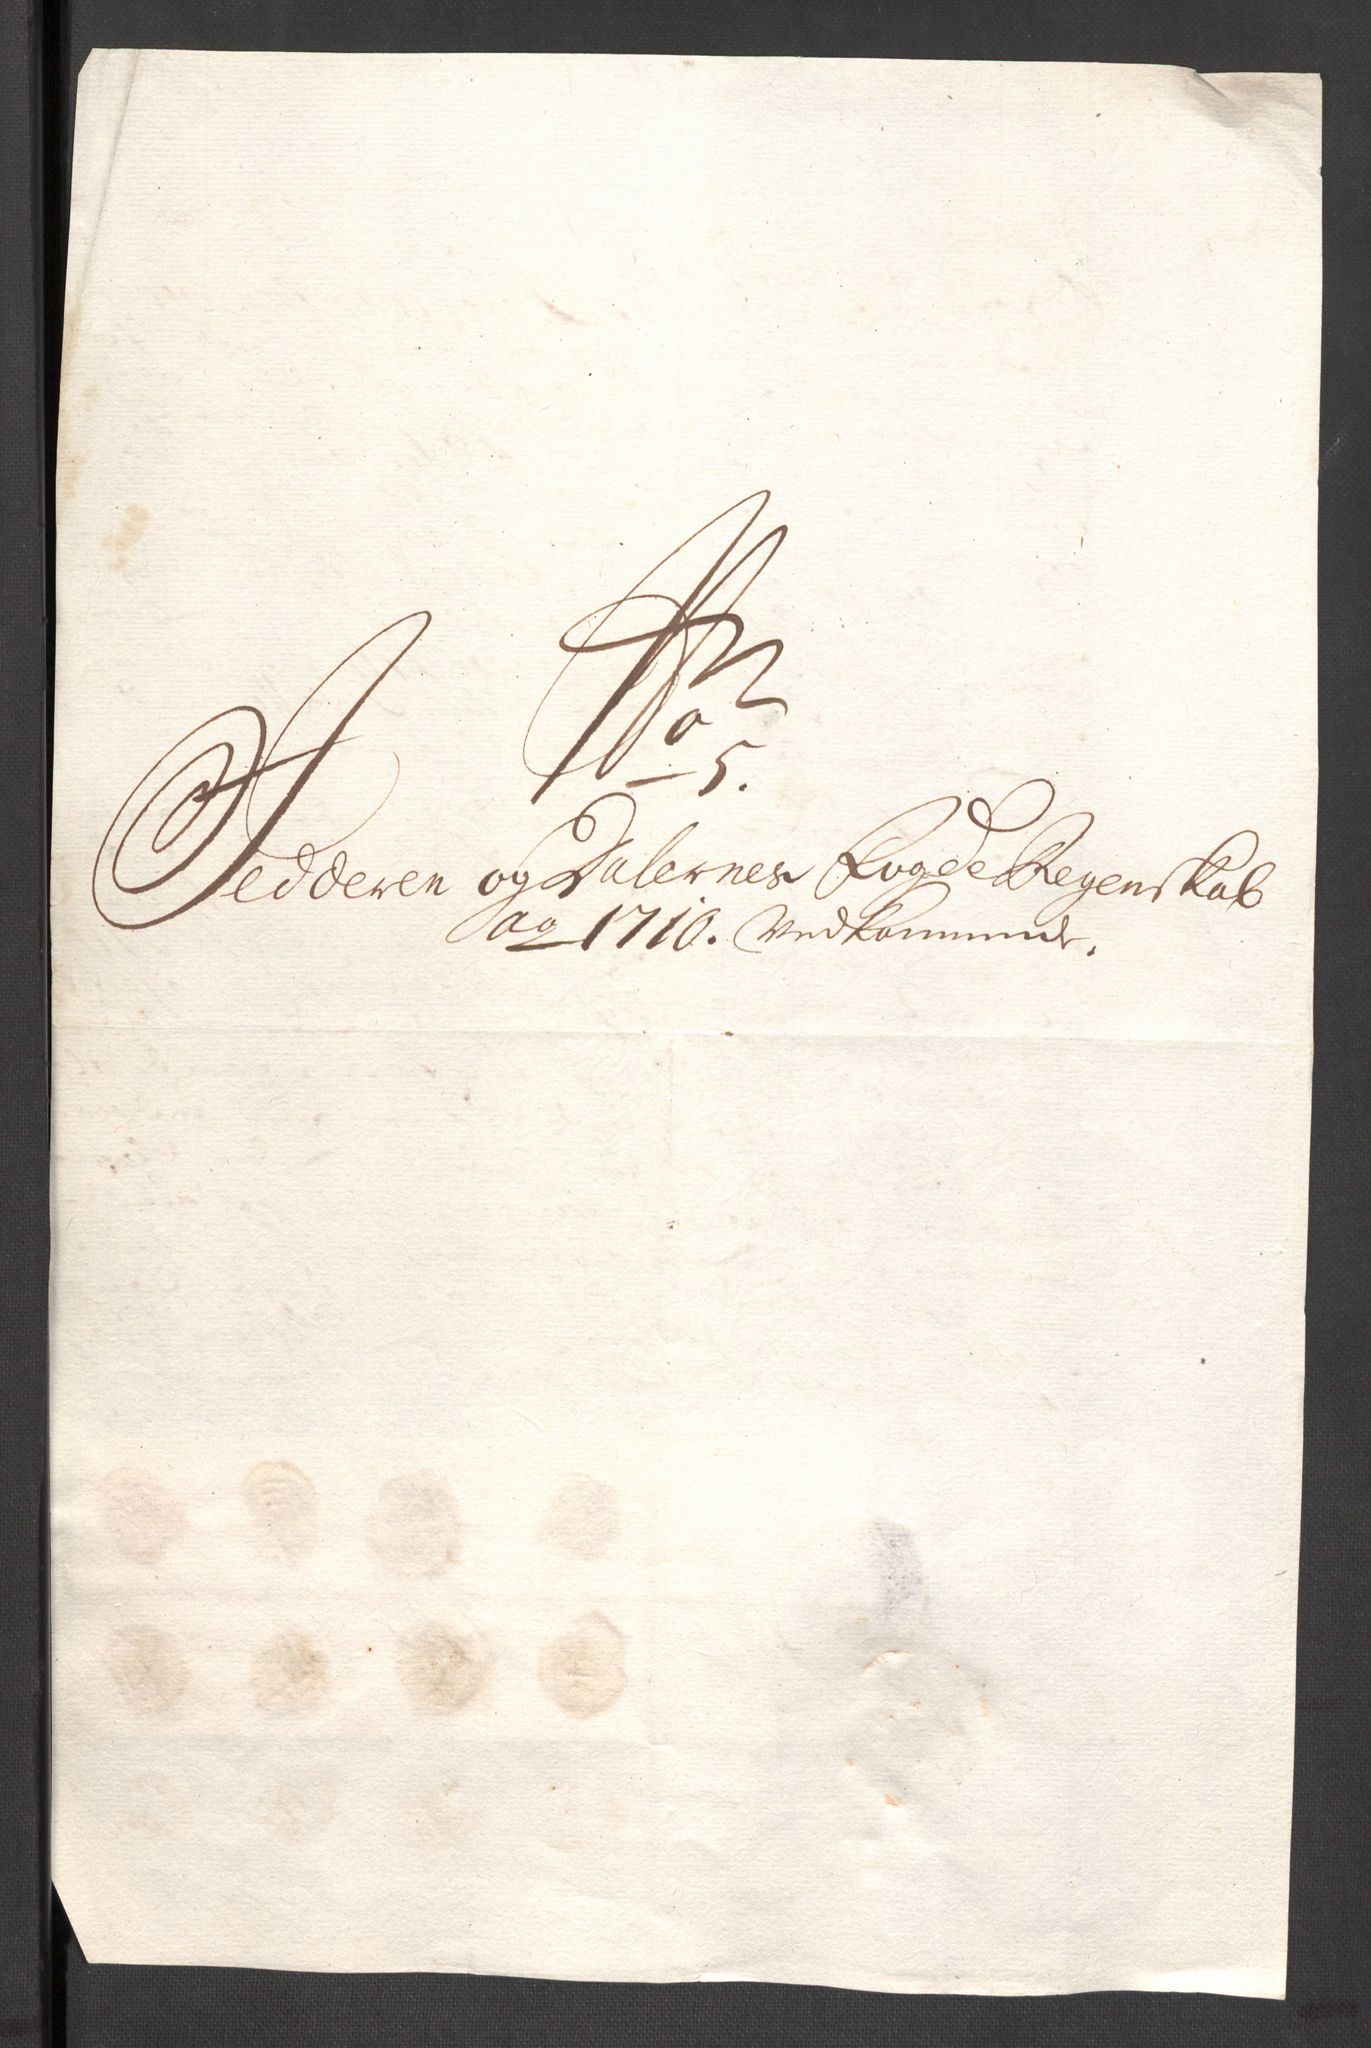 No
5.
Jedderen og Dalernes Fogde Regenskab
ao 1710. Vedkommende.